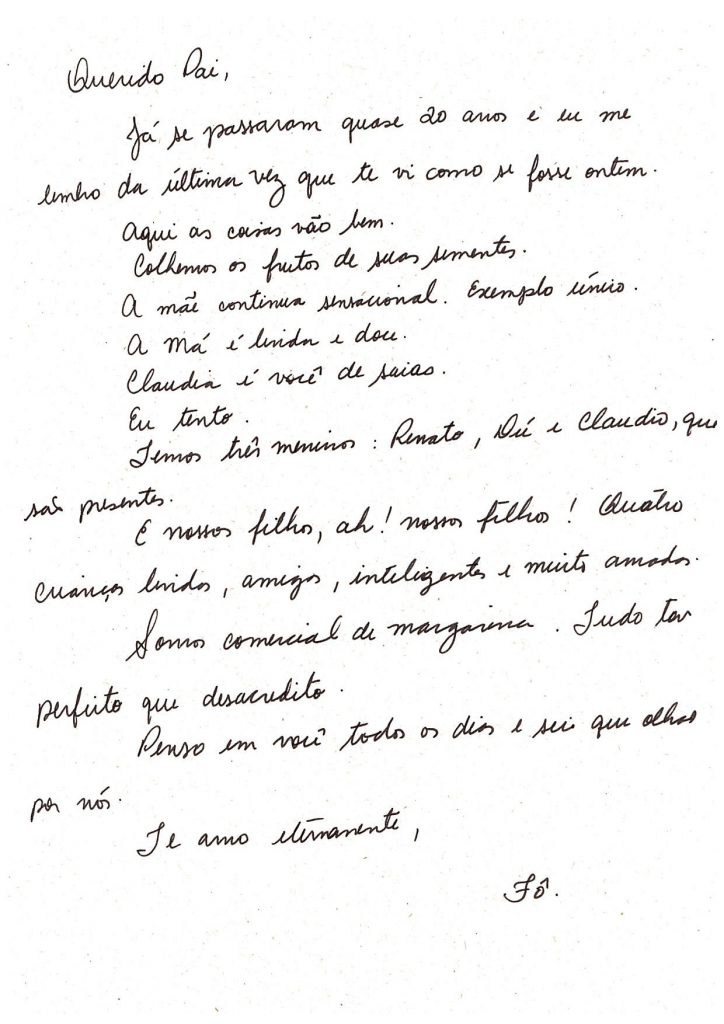 Querido Pai,
Já se passaram quase 20 anos e eu me
lembro da última vez que te vi como se fosse ontem.
Aqui as coisas vão bem.
Colhemos os frutos de suas sementes.
A mãe continua sensacional. Exemplo único.
A Má é linda e doce.
Claudia é você de saias.
Eu tento.
Temos três meninos: Renato, Dé e Claudio, que
são presentes.
E nossos filhos, ah! nossos filhos! Quatro
crianças lindas, amigas, inteligentes e muito amadas.
Somos comercial de margarina. Tudo tão
perfeito que desacredito.
Penso em você todos os dias e sei que olhas
por nós.
Te amo eternamente,
Fô.